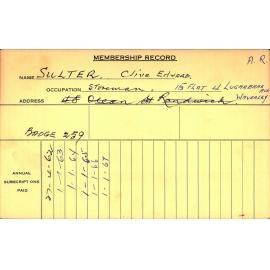 MEMBERSHIP RECORD
A. R.
NAME SULTER, Clive Edward.
OCCUPATION Storeman. 15 FLAT 11 LUGARBRAE AVE
ADDRESS 48 Ocean St Randwick. WAVERLEY
BADGE 259
ANNUAL SUBSCRIPTIONS PAID
27-4-62
1-1-63
1-1-64
1-1-65
1-1-66
1-1-67